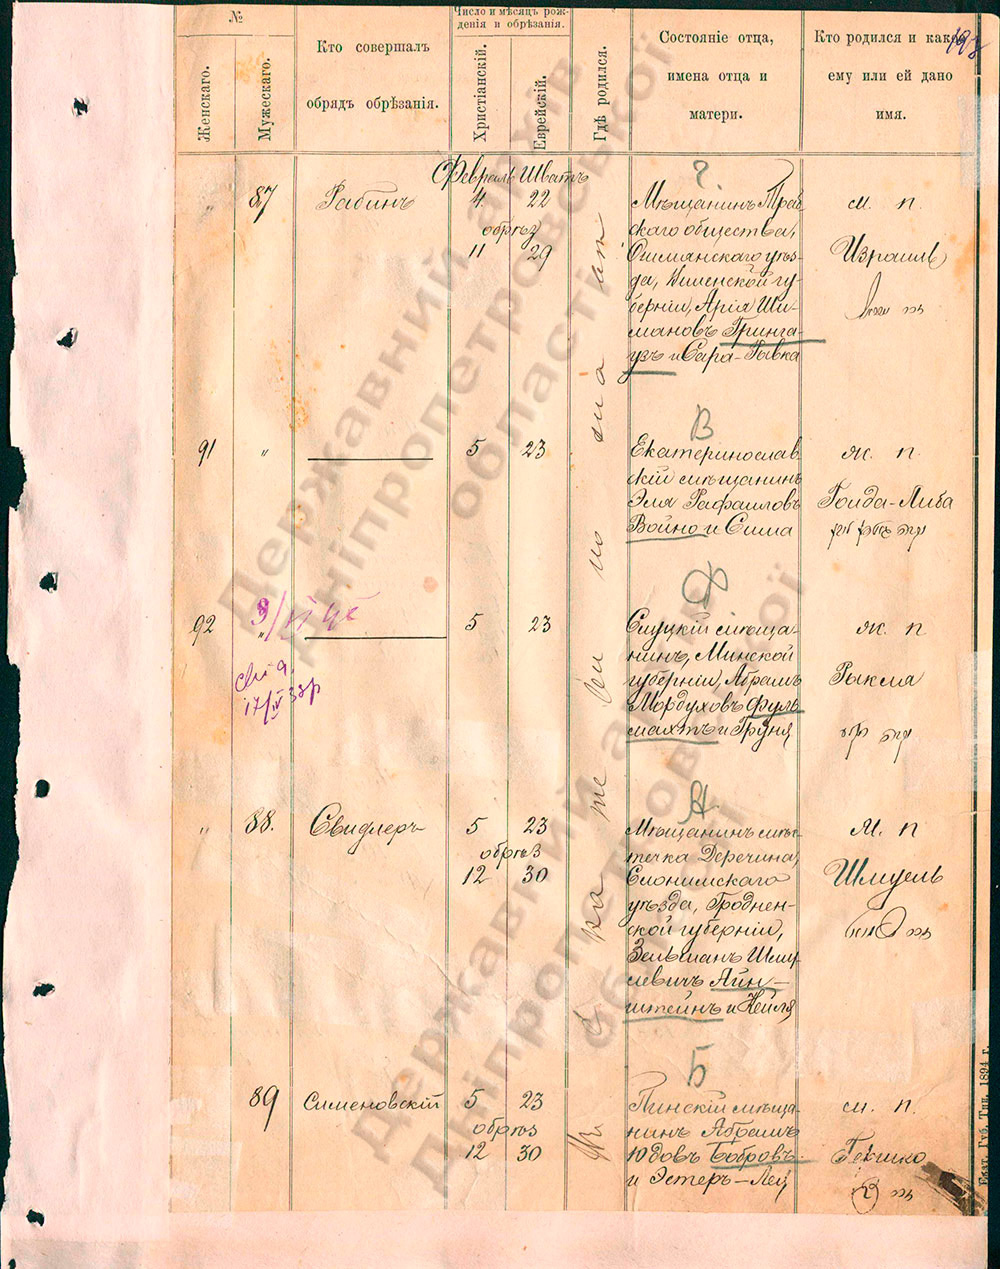 №
Женскаго.
Мужескаго.
Кто совершалъ
обрядъ обрѣзанія.
Число и мѣсяцъ рож-
денія и обрѣзанія.
Христіанскій.
Еврейскій.
Гдѣ родился.
Состояніе отца,
имена отца и
матери.
Кто родился и какое
ему или ей дано
имя.
Февраль Шватъ
„ 87 Рабинъ 4 22
обрѣз
11 29
Г
Мѣщанинъ Траб
скаго общества,
Ошмянскаго уѣз-
да, Виленской гу-
берніи, Арія Ши-
мановъ Гринга-
узъ и Сара-Рывка
м. п.
Израиль
91 „ 5 23
В
Екатеринослав
скій мѣщанинъ
Эля Рафаиловъ
Войно и Сима
ж. п.
Гоида-Либа
92 „ 5 23
17/IV 38р
Ф
Слуцкій мѣща-
нинъ, Минской
губерніи, Абрамъ
Мордуховъ Фуль
махтъ и Груня
ж. п
Рыкма
„ 88. Свидлеръ 5 23
обрѣз
12 30
А
Мѣщанинъ мѣс-
течка Деречина,
Слонимскаго
уѣзда, Гроднен-
ской губерніи,
Зельманъ Шму-
левичъ Айн-
штейнъ и Кейля
М. п
Шмуель
89 Сименовскій 5 23
обрѣз
12 30
Б
Пинскій мѣща-
нинъ Абрамъ
Юдовъ Бобровъ
и Эстеръ-Леи
м. п.
въ г. Екатеринославѣ
Екат. Губ. Тип. 1894 г.
Державний архів
Дніпропетровської
області
Державний архів
Дніпропетровської
області